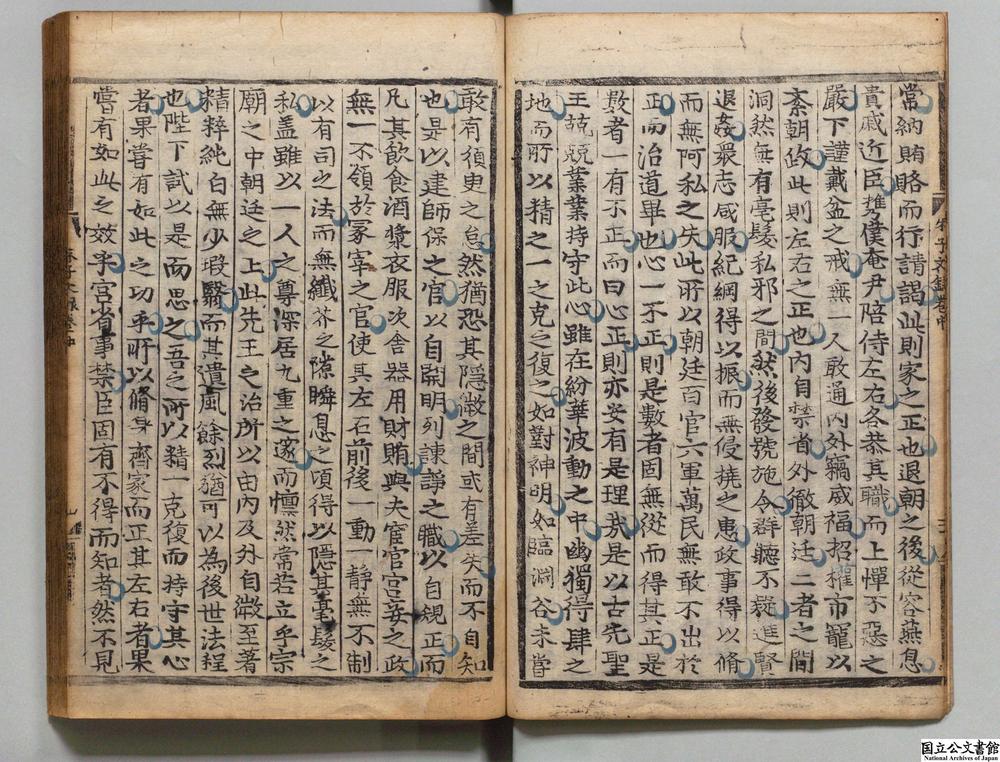 常納賄賂而行請謁此則家之正也退朝之後從容燕息
貴戚近臣携僕奄尹陪侍左右各恭其職而上憚不惡之
嚴下謹戴盆之戒無一人敢通内外竊威福招權市寵以
紊朝政此則左右之正也内自禁省外徹朝廷二者之間
洞然無有毫髮私邪之間然後發號施令群聽不疑進賢
退姦衆志咸服紀綱得以振而無侵撓之患政事得以脩
而無阿私之失此所以朝廷百官六軍萬民無敢不出於
正而治道畢也心一不正則是數者固無從而得其正是
數者一有不正而曰心正則亦安有是理哉是以古先聖
王兢兢業業持守此心雖在紛華波動之中幽獨得肆之
地而所以精之一之克之復之如對神明如臨淵谷未嘗
敢有須臾之怠然猶恐其隱微之間或有差失而不自知
也是以建師保之官以自開明列諫諍之職以自規正而
凡其飲食酒漿衣服次舍器用財賄與夫宦官宮妾之政
無一不領於冢宰之官使其左右前後一動一靜無不制
以有司之法而無纖芥之隙瞬息之頃得以隱其毫髮之
私盖雖以一人之尊深居九重之邃而懍然常若立乎宗
廟之中朝廷之上此先王之治所以由内及外自微至著
精粹純白無少瑕翳而其遺風餘烈猶可以為後世法程
也陛下試以是而思之吾之所以精一克復而持守其心
者果嘗有如此之功乎所以脩身齊家而正其左右者果
嘗有如此之效乎宮省事禁臣固有不得而知者然不見
朱子文錄卷中
國立公文書館
National Archives of Japan